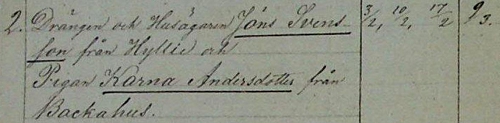 2. Drängen och Husägaren Jöns Svens- 3/2, 10/2, 17/2 9/3.
son från Hyllie och
Pigan Karna Andersdotter från
Backahus.